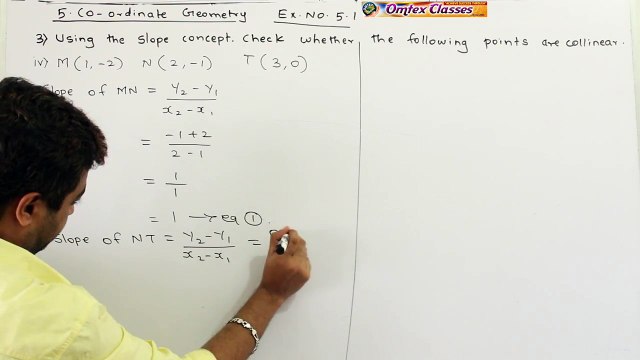 5. Co-ordinate Geometry Ex. No. 5.1
Omtex Classes
3) Using the slope concept. Check whether the following points are collinear.
iv) M(1,-2) N(2,-1) T(3,0)
Slope of MN = (y₂-y₁)/(x₂-x₁)
= (-1+2)/(2-1)
= 1/1
= 1 → eq ①.
Slope of NT = (y₂-y₁)/(x₂-x₁) =